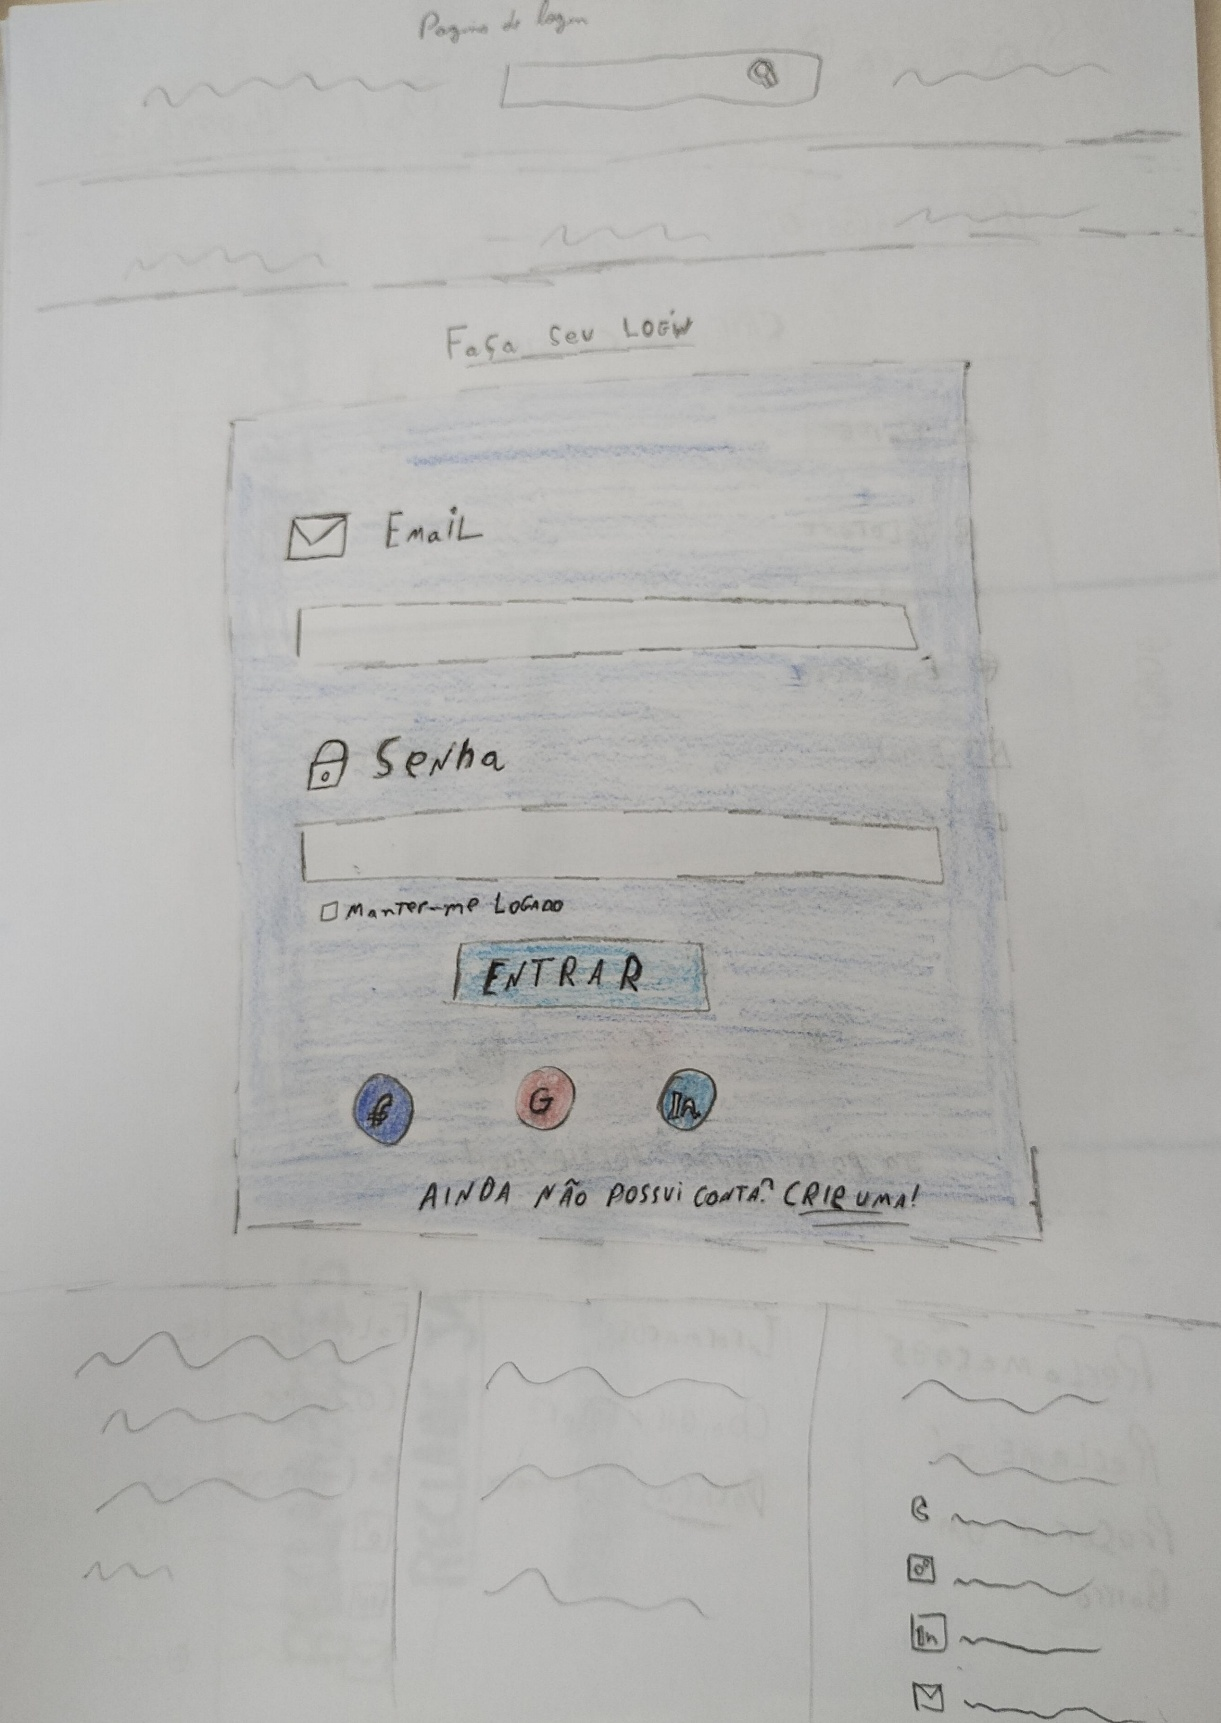 Pagina de login
Faça seu LOGIN
EmaiL
Senha
Manter-me LOGADO
ENTRAR
f G In
AINDA NÃO POSSUI CONTA? CRIE UMA!
In